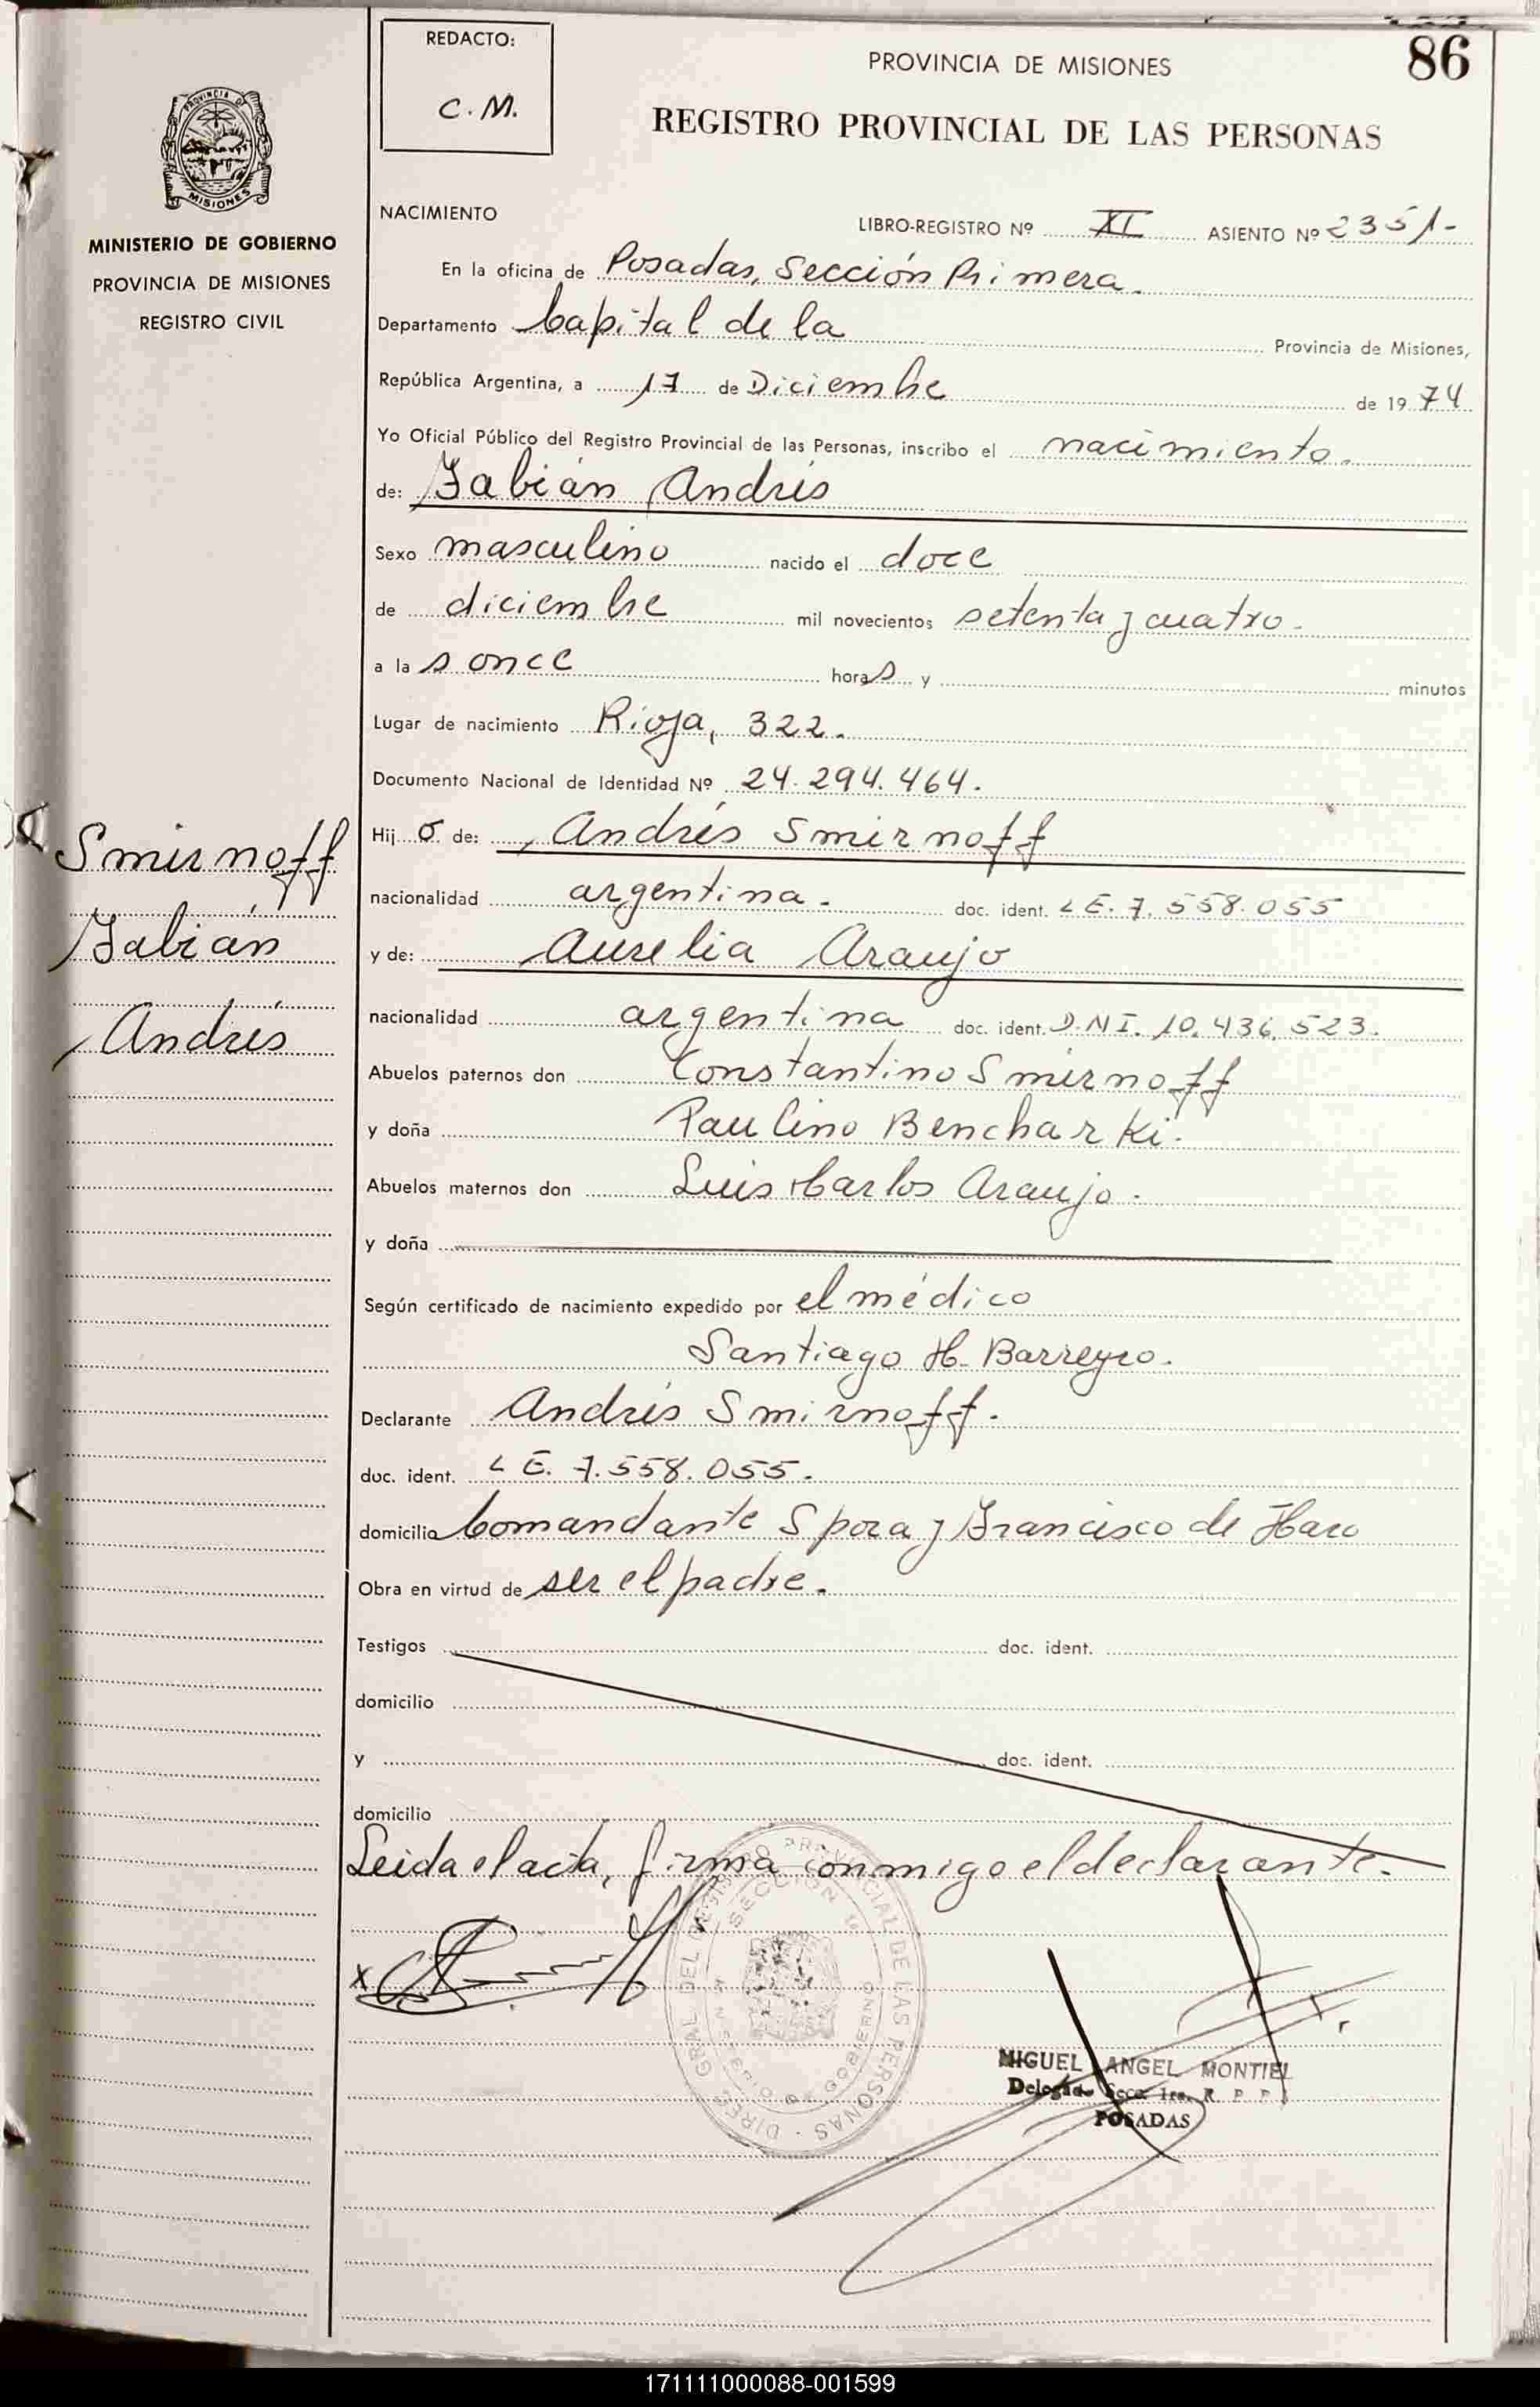 REDACTO:
C. M.
PROVINCIA DE MISIONES
86
REGISTRO PROVINCIAL DE LAS PERSONAS
MISIONES
MINISTERIO DE GOBIERNO
PROVINCIA DE MISIONES
REGISTRO CIVIL
NACIMIENTO
LIBRO-REGISTRO Nº XI ASIENTO Nº 2351-
En la oficina de Posadas, Sección Primera.
Departamento Capital de la Provincia de Misiones,
República Argentina, a 17 de Diciembre de 19 74
Yo Oficial Público del Registro Provincial de las Personas, inscribo el nacimiento.
de: Fabián Andrés
Sexo masculino nacido el doce
de diciembre mil novecientos setenta y cuatro.
a la s once hora s y minutos
Lugar de nacimiento Rioja, 322.
Documento Nacional de Identidad Nº 24.294.464.
Hij o de: Andrés Smirnoff
nacionalidad argentina. doc. ident. L E. 7. 558. 055
y de: Aurelia Araujo
nacionalidad argentina doc. ident. D. N I. 10. 436. 523.
Abuelos paternos don Constantino Smirnoff
y doña Paulino Bencharki.
Abuelos maternos don Luis Carlos Araujo.
y doña
Según certificado de nacimiento expedido por el médico
Santiago H. Barreyro.
Declarante Andrés Smirnoff.
doc. ident. L E. 7. 558. 055.
domicilio Comandante Spora y Francisco de Haro
Obra en virtud de ser el padre.
Testigos doc. ident.
domicilio
y doc. ident.
domicilio
Leida el acta, firma conmigo el declarante.
Smirnoff
Fabián
Andrés
x
DIREC. GRAL DEL REGISTRO PROVINCIAL DE LAS PERSONAS
SECCION 1ª
MINISTERIO DE GOBIERNO
MIGUEL ANGEL MONTIEL
Delegado Secc. 1ra. R. P. P.
POSADAS
171111000088-001599